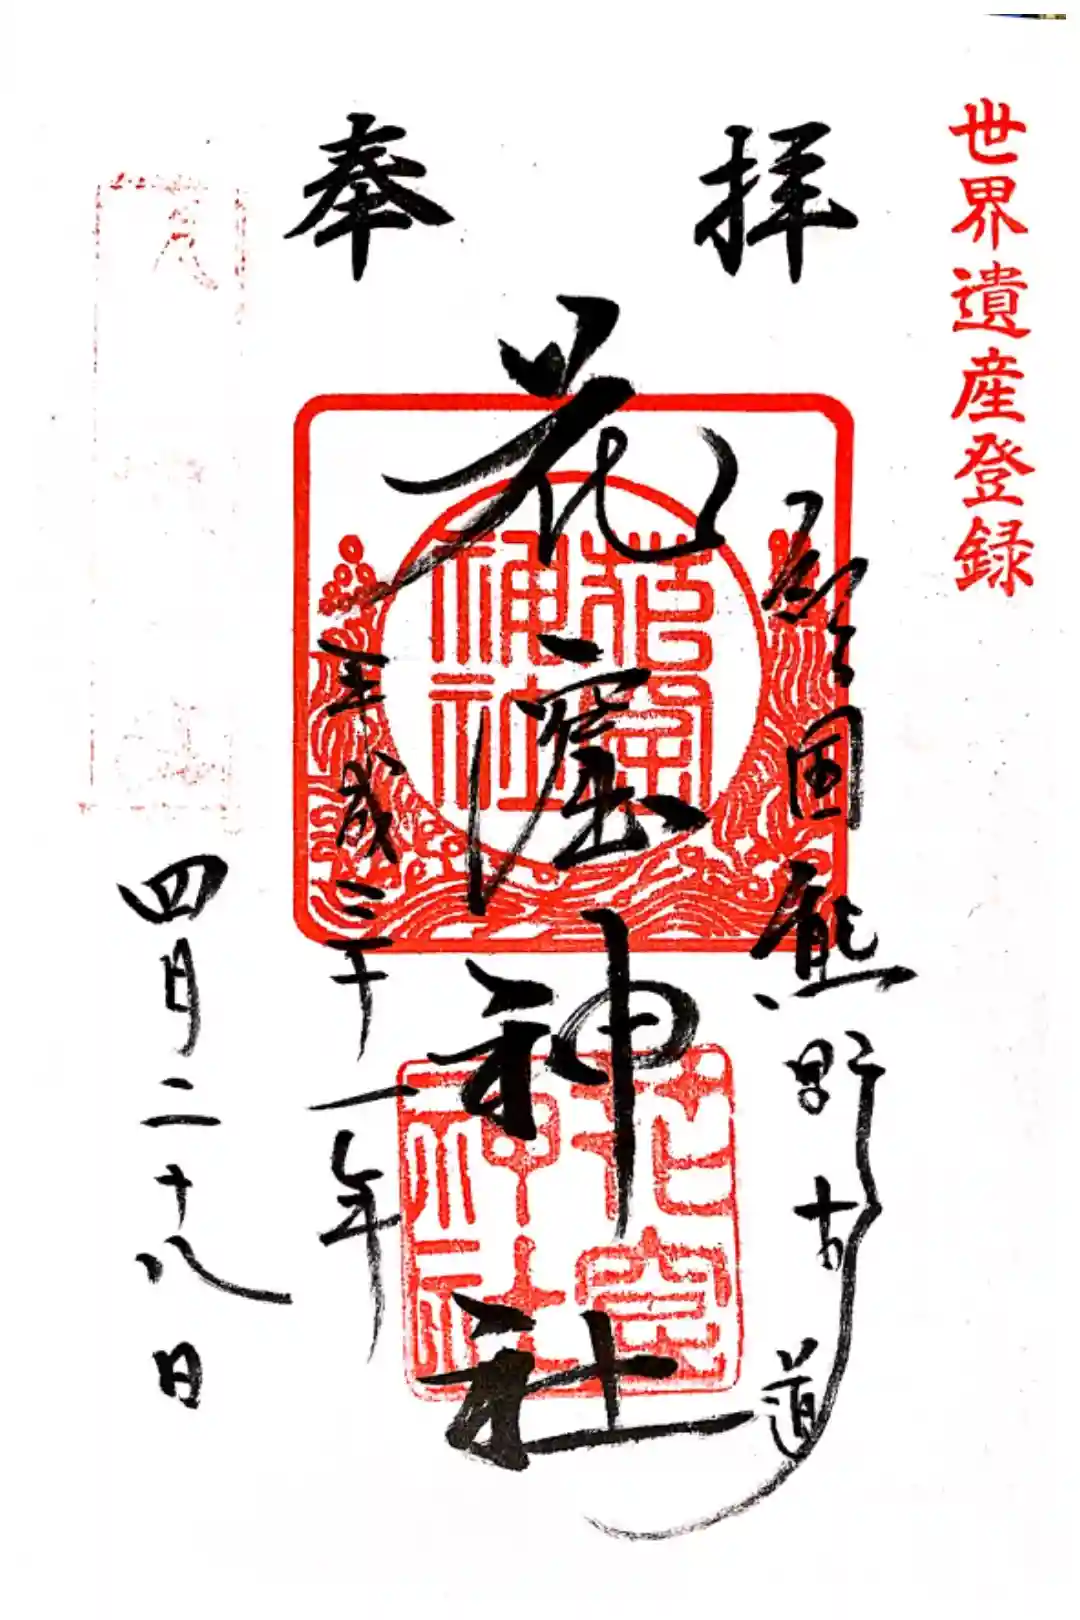 世界遺産登録
奉拝
国熊野古道
花窟神社
花窟神社
花窟神社
平成三十一年
四月二十八日